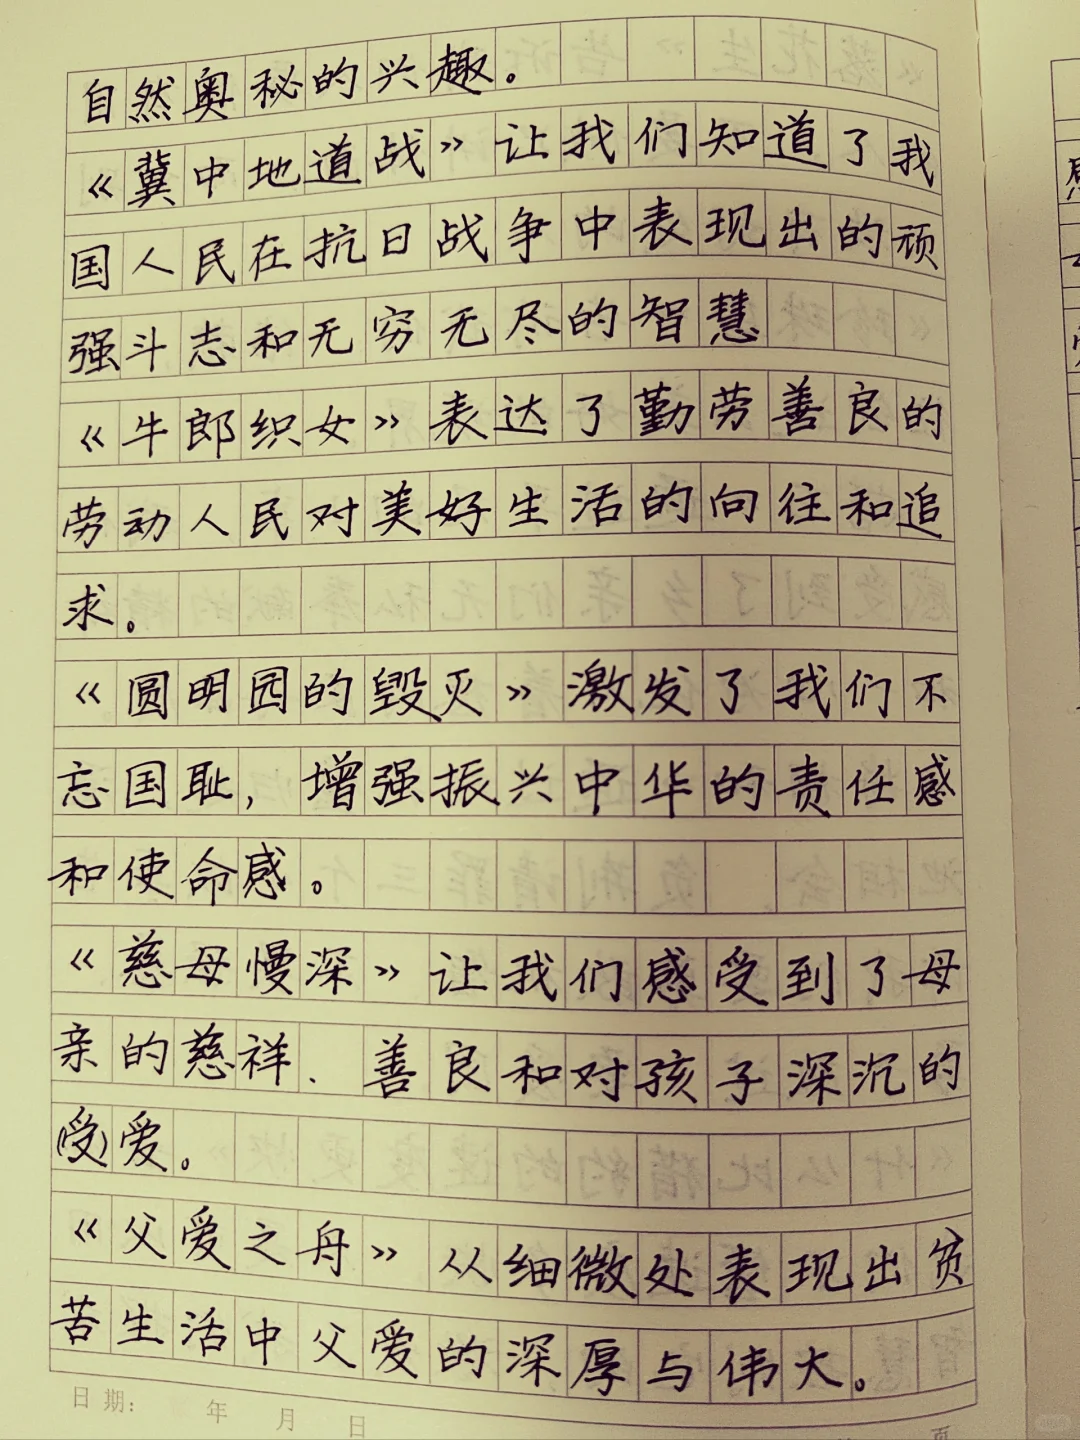 自然奥秘的兴趣。
《冀中地道战》让我们知道了我
国人民在抗日战争中表现出的顽
强斗志和无穷无尽的智慧
《牛郎织女》表达了勤劳善良的
劳动人民对美好生活的向往和追
求。
《圆明园的毁灭》激发了我们不
忘国耻,增强振兴中华的责任感
和使命感。
《慈母慢深》让我们感受到了母
亲的慈祥、善良和对孩子深沉的
(受)爱。
《父爱之舟》从细微处表现出贫
苦生活中父爱的深厚与伟大。
日期: 年 月 日
页